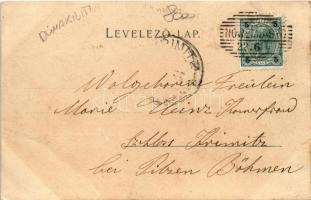 LEVELEZŐ-LAP.
Wolgeboren Freulein
Marie Heinz Kammerfrau
Schloss Krimitz
bei Pilsen Böhmen